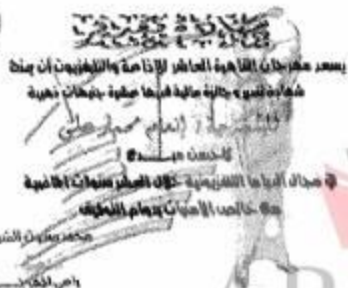 شهادة تقدير
يسعد مهرجان القاهرة العاشر للإذاعة والتليفزيون أن يمنح
شهادة تقدير وجائزة مالية قدرها عشرة جنيهات ذهبية
للمخرجة / إنعام محمد علي
كأحسن
في مجال الدراما التليفزيونية خلال العشر سنوات الماضية
مع خالص الأمنيات بدوام التوفيق